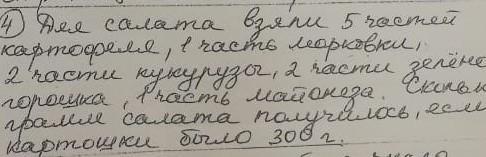 4) Для салата взяли 5 частей
картофеля, 1 часть морковки,
2 части кукурузы, 2 части зелёно
горошка, 1 часть майонеза. Скольк
грамм салата получилось, если
картошки было 300 г.